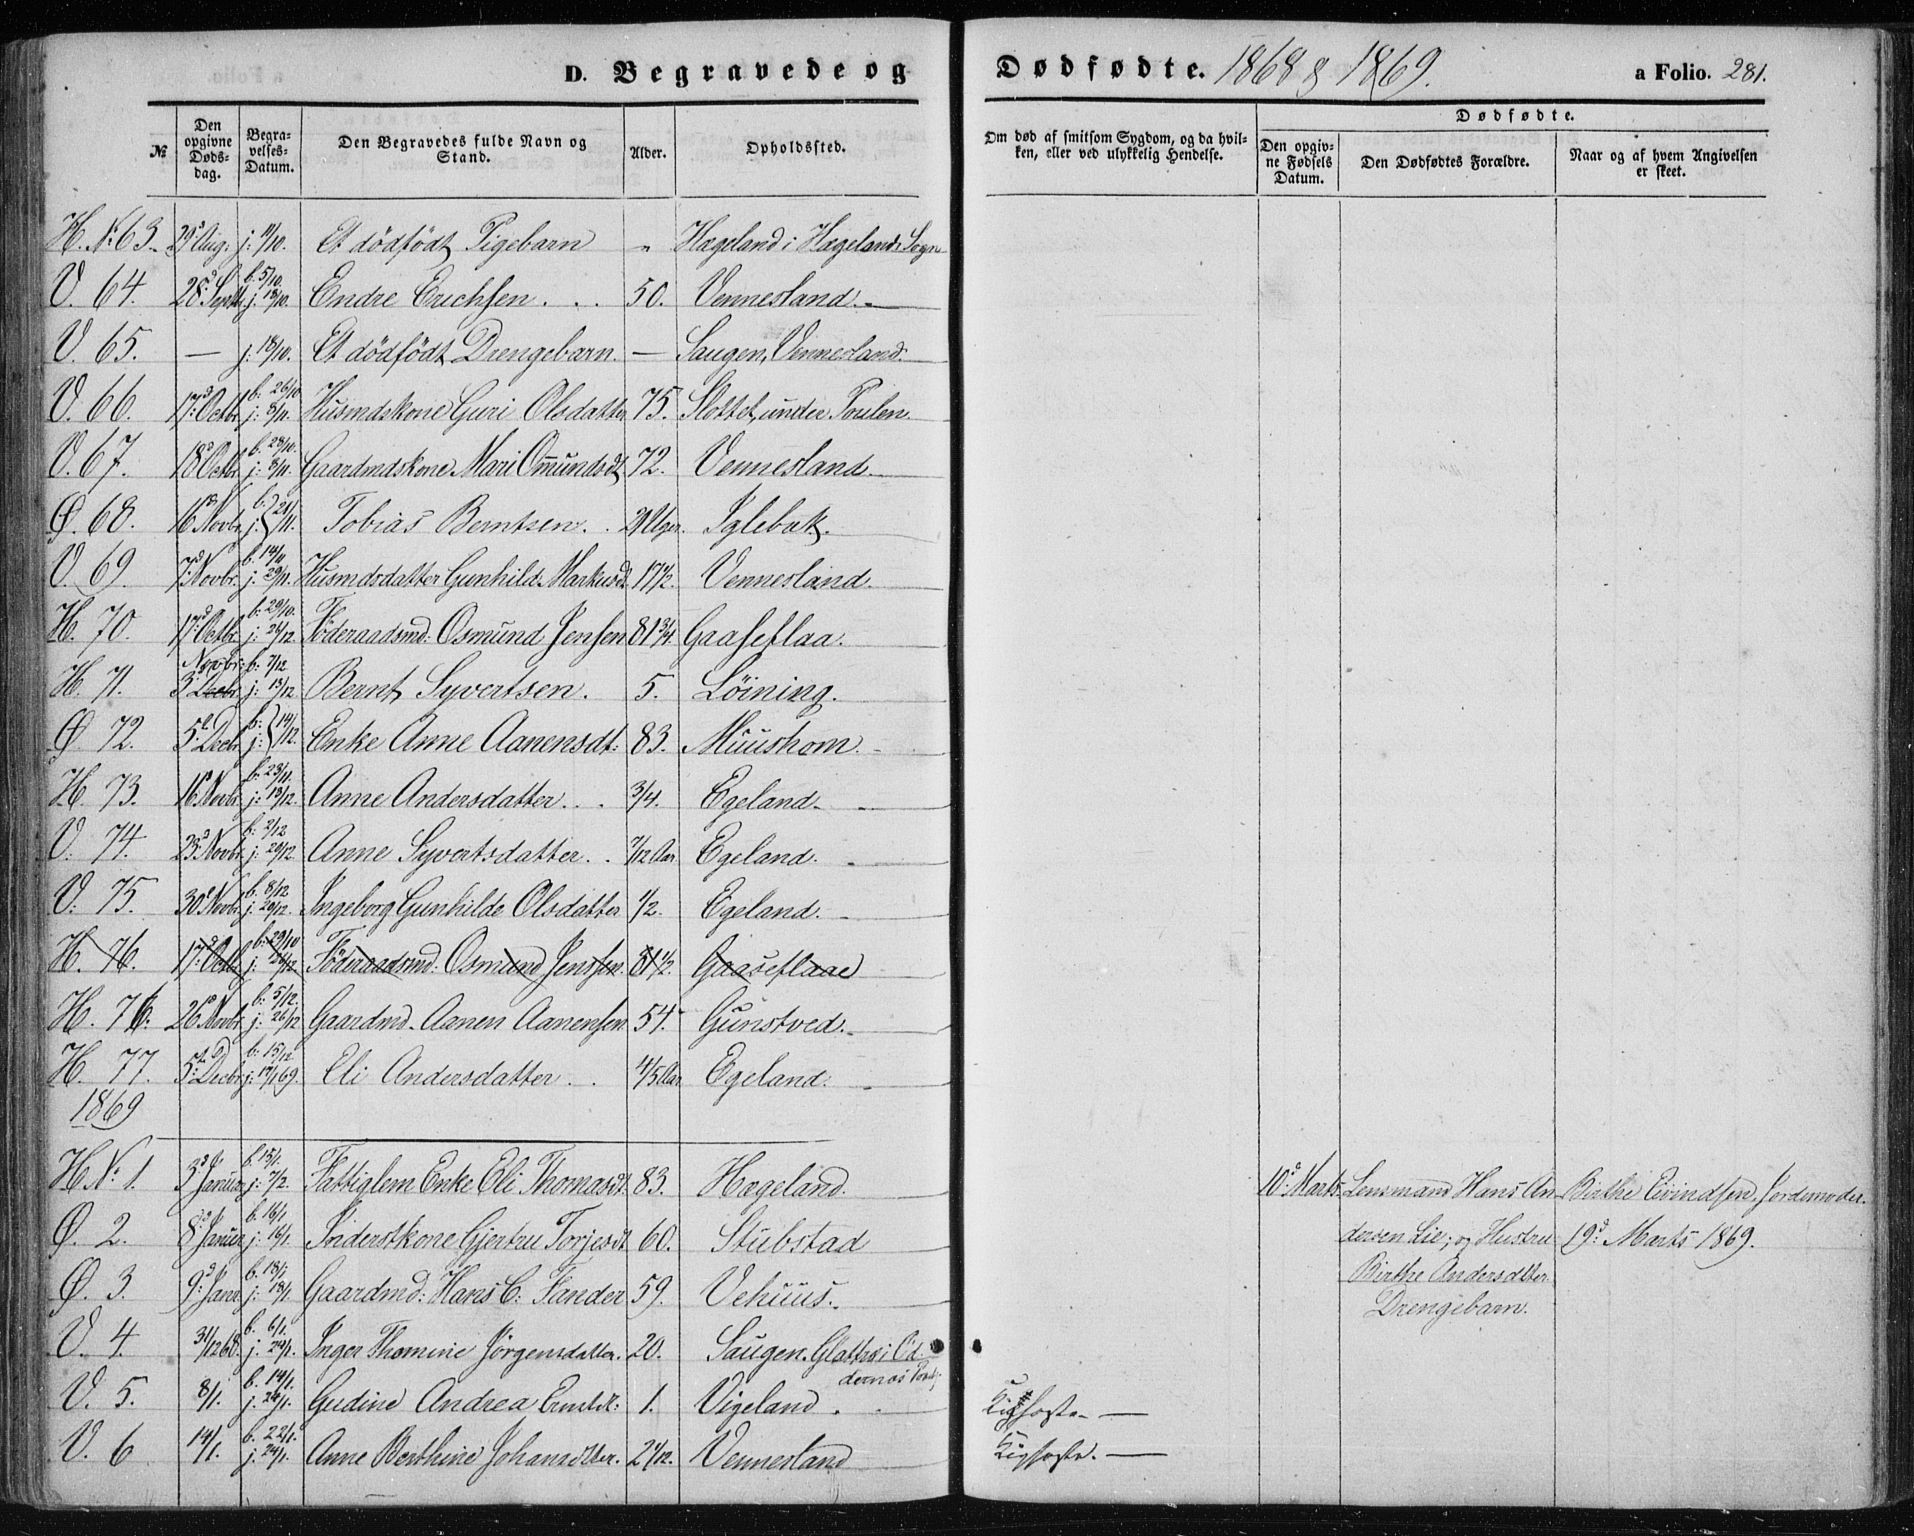 D. Begravede og Dødfødte. 1868 & 1869. a Folio. 281.
№ Den opgivne Døds-dag. Begra-velses-Datum. Den Begravedes fulde Navn og Stand. Alder. Opholdssted. Om død af smitsom Sygdom, og da hvil-ken, eller ved ulykkelig Hendelse. Dødfødte. Den opgiv-ne Fødsels Datum. Den Dødfødtes Forældre. Naar og af hvem Angivelsen er skeet.
H. No 63. 29d Aug: j. 11/10. Et dödfödt Pigebarn " Hægeland i Hægelands Sogn
V. 64. 28d Septbr b. 5/10. j. 18/10. Endre Erichsen. 50. Vennesland.
V. 65. — j. 18/10. Et dödfödt Drengebarn. — Saugen, Vennesland.
V. 66. 17d Octbr b. 26/10 j. 8/11. Husmdskone Guri Olsdatter 75. Slottet, under Poulen.
V. 67. 18d Octbr b. 28/10. j. 8/11. Gaardmdskone Mari Omundsdt 72. Vennesland.
Ø. 68. 16d Novbr b. j. } 28/11. Tobias Berntsen. 21 Uger. Iglebæk.
V. 69. 7d Novbr. b. 14/11 j. 29/11. Husmdsdatter Gunhild Markusdt. 17 1/2. Vennesland.
H. 70. 17d Octbr b. 29/10. j. 26/12. Föderaadsmd: Osmund Jensen 81 3/4. Gaaseflaa.
H. 71. 3d Decbr Novbr: b. 7/12 j. 13/12. Bernt Syvertsen. 5. Löining.
Ø. 72. 5t Decbr b: j: } 14/12. Enke Anne Aanensdt: 83. Muushom.
H. 73. 16d Novbr b. 23/11. j. 13/12. Anne Andersdatter. 3/4. Egeland.
V. 74. 23d Novbr b. 2/12 j. 20/12. Anne Syvertsdatter. 7/12 Aar Egeland.
V. 75. 30d Novbr b. 8/12 j. 20/12. Ingeborg Gunhilde Olsdatter 1/2. Egeland.
H. 76. 17d Octbr b. 29/10 j. 26/12. Föderaadsmd: Osmund Jenssen. 81 1/2. Gaaseflaae
H. 76. 26d Novbr b. 5/12. j. 26/12 Gaardmd. Aanen Aanensen 54. Gunstved.
H. 77. 5t Decbr b. 15/12 j: 17/1 69. Eli Andersdatter. 4/5 Aar Egeland.
1869
H No 1. 3d Januar b. 15/1. j. 7/2. Fattiglem Enke Eli Thomasdt. 83. Hægeland. 10d Marts Lensmand Hans An- Birthe Eivindsen, Jordemoder.
Ø. 2. 8d Januar b. 16/1 j. 16/1. Inderstkone Gjertru Torjesdt 60. Stubstad dersen Lie, og Hustru 19d Marts 1869.
Ø. 3. 9d Janr b. 18/1 j. 18/1. Gaardmd: Hans C: Fander 59. Vehuus. Birthe Andersdtter
Drengebarn.
V. 4. 31/12 68. b. 6/1. j. 24/1. Inger Thomine Jörgensdatter. 20. Saugen. Glattre i Od-
dernæs
V. 5. 8/1. b. 14/1. j. 24/1. Gudine Andrea 1. Vigeland. Kighoste. —
V. 6 14/1. b. 22/1. j. 24/1. Anne Berthine Johansdtter. 2 1/12. Vennesland Kighoste. —